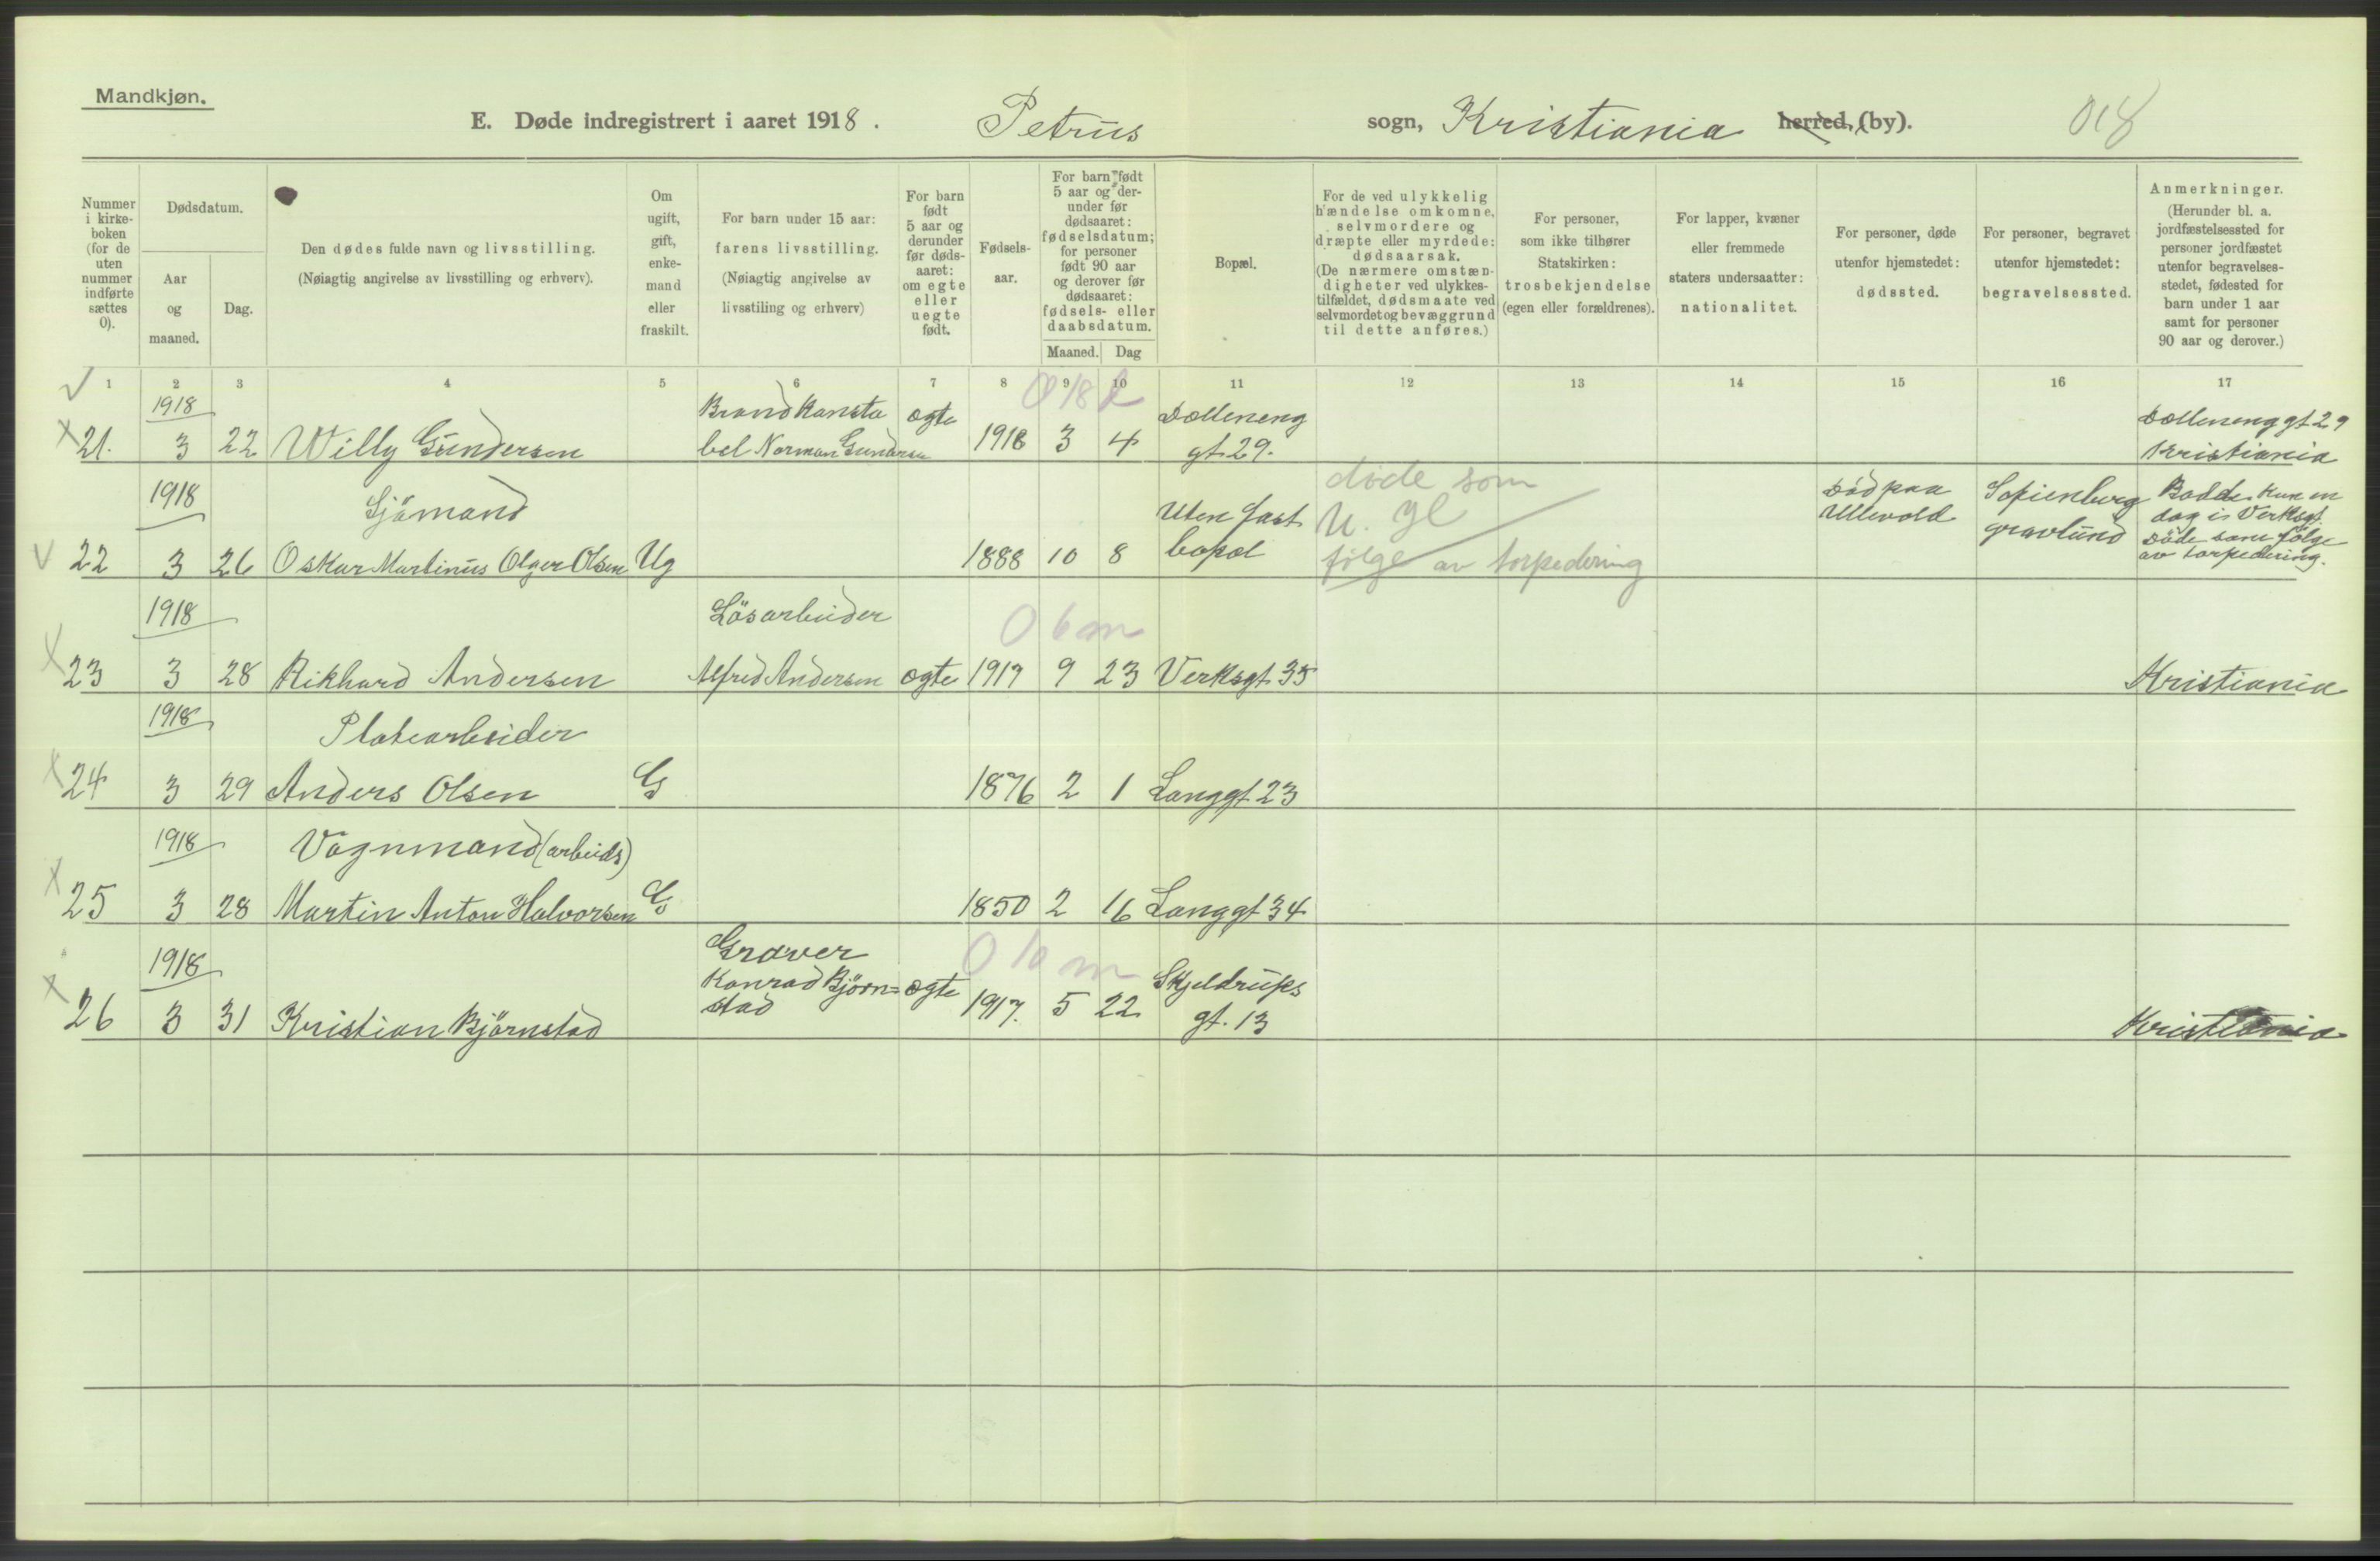 Mandkjøn.
E. Døde indregistrert i aaret 1918. Petrus sogn, Kristiania herred, (by). 018
Nummer i kirke-boken (for de uten nummer indførte sættes 0).
Dødsdatum.
Aar og maaned.
Dag.
Den dødes fulde navn og livsstilling.
(Nøiagtig angivelse av livsstilling og erhverv).
Om ugift, gift, enke-mand eller fraskilt.
For barn under 15 aar: farens livsstilling.
(Nøiagtig angivelse av livsstiling og erhverv)
For barn født 5 aar og derunder før døds-aaret: om egte eller uegte født.
Fødsels-aar.
For barn født 5 aar og der-under før dødsaaret: fødselsdatum; for personer født 90 aar og derover før dødsaaret: fødsels- eller daabsdatum.
Maaned. Dag
Bopæl.
For de ved ulykkelig hændelse omkomne, selvmordere og dræpte eller myrdede: dødsaarsak.
(De nærmere omstæn-digheter ved ulykkes-tilfældet, dødsmaate ved selvmordet og bevæggrund til dette anføres.)
For personer, som ikke tilhører Statskirken: trosbekjendelse (egen eller forældrenes).
For lapper, kvæner eller fremmede staters undersaatter: nationalitet.
For personer, døde utenfor hjemstedet: dødssted.
For personer, begravet utenfor hjemstedet: begravelsessted.
Anmerkninger.
(Herunder bl. a. jordfæstelsessted for personer jordfæstet utenfor begravelses-stedet, fødested for barn under 1 aar samt for personer 90 aar og derover.)
1 2 3 4 5 6 7 8 9 10 11 12 13 14 15 16 17
1918 Brandkonsta ægte 0 18 d Dælleneng Dællenenggt 29
21. 3 22 Willy Gundersen bel Norman Gundersen 1918 3 4 gt. 29. Kristiania
1918 Sjømand Uten fast døde som U. gl Død paa Ullevold Sofienberg gravlund Bodde kun en dag i Verksgt. Døde som følge av torpedering.
22 3 26 Oskar Martinus Olger Olsen Ug 1888 10 8 bopæl følge av torpedering
1918 Løsarbeider 0 6 m
23 3 28 Rikhard Andersen Alfred Andersen ægte 1917 9 23 Verksgt 35 Kristiania
1918 Platearbeider
24 3 29 Anders Olsen G 1876 2 1 Langgt 23
1918 Vognmand (arbeids)
25 3 28 Martin Anton Halvorsen G 1850 2 16 Langgt 34
1918 Graver 0 10 m
Konrad Bjørn= ægte Skjeldrups
26 3 31 Kristian Bjørnstad stad 1917. 5 22 gt. 13 Kristiania